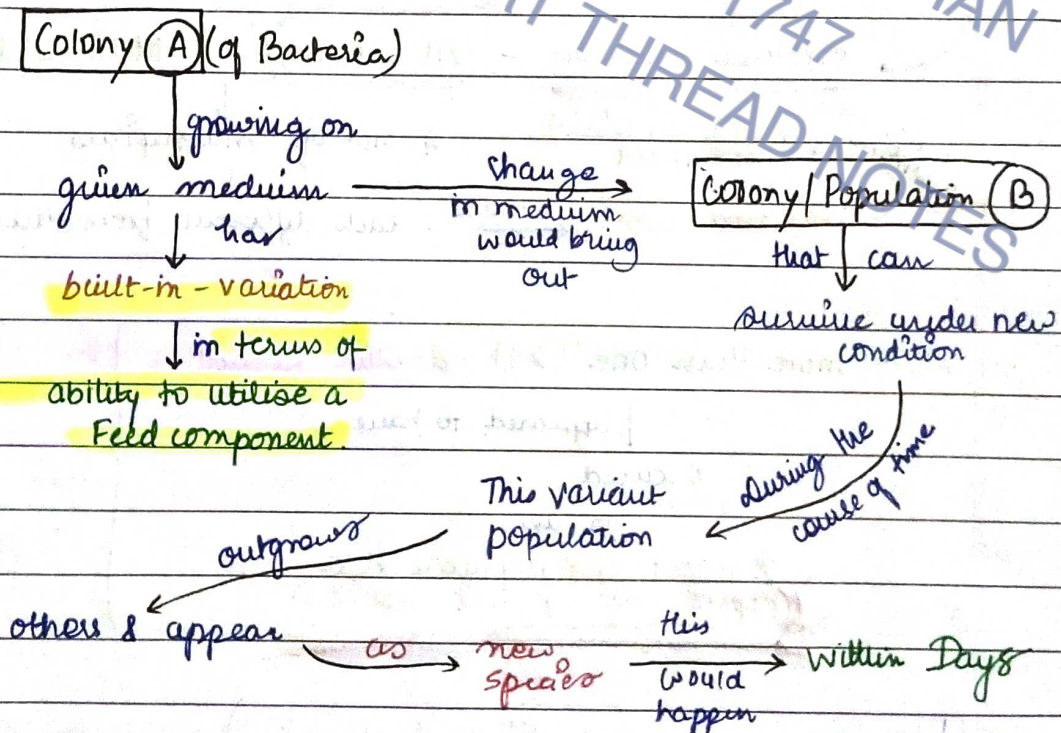 1747
HAN
IT THREAD NOTES
Colony A (of Bacteria)
growing on
given medium
has
built-in-variation
in terms of
ability to utilise a
Feed component.
change
in medium
would bring
out
Colony/Population B
that can
survive under new
condition
During the
course of time
This variant
population
outgrows
others & appear
as
new
species
this
would
happen
within Days